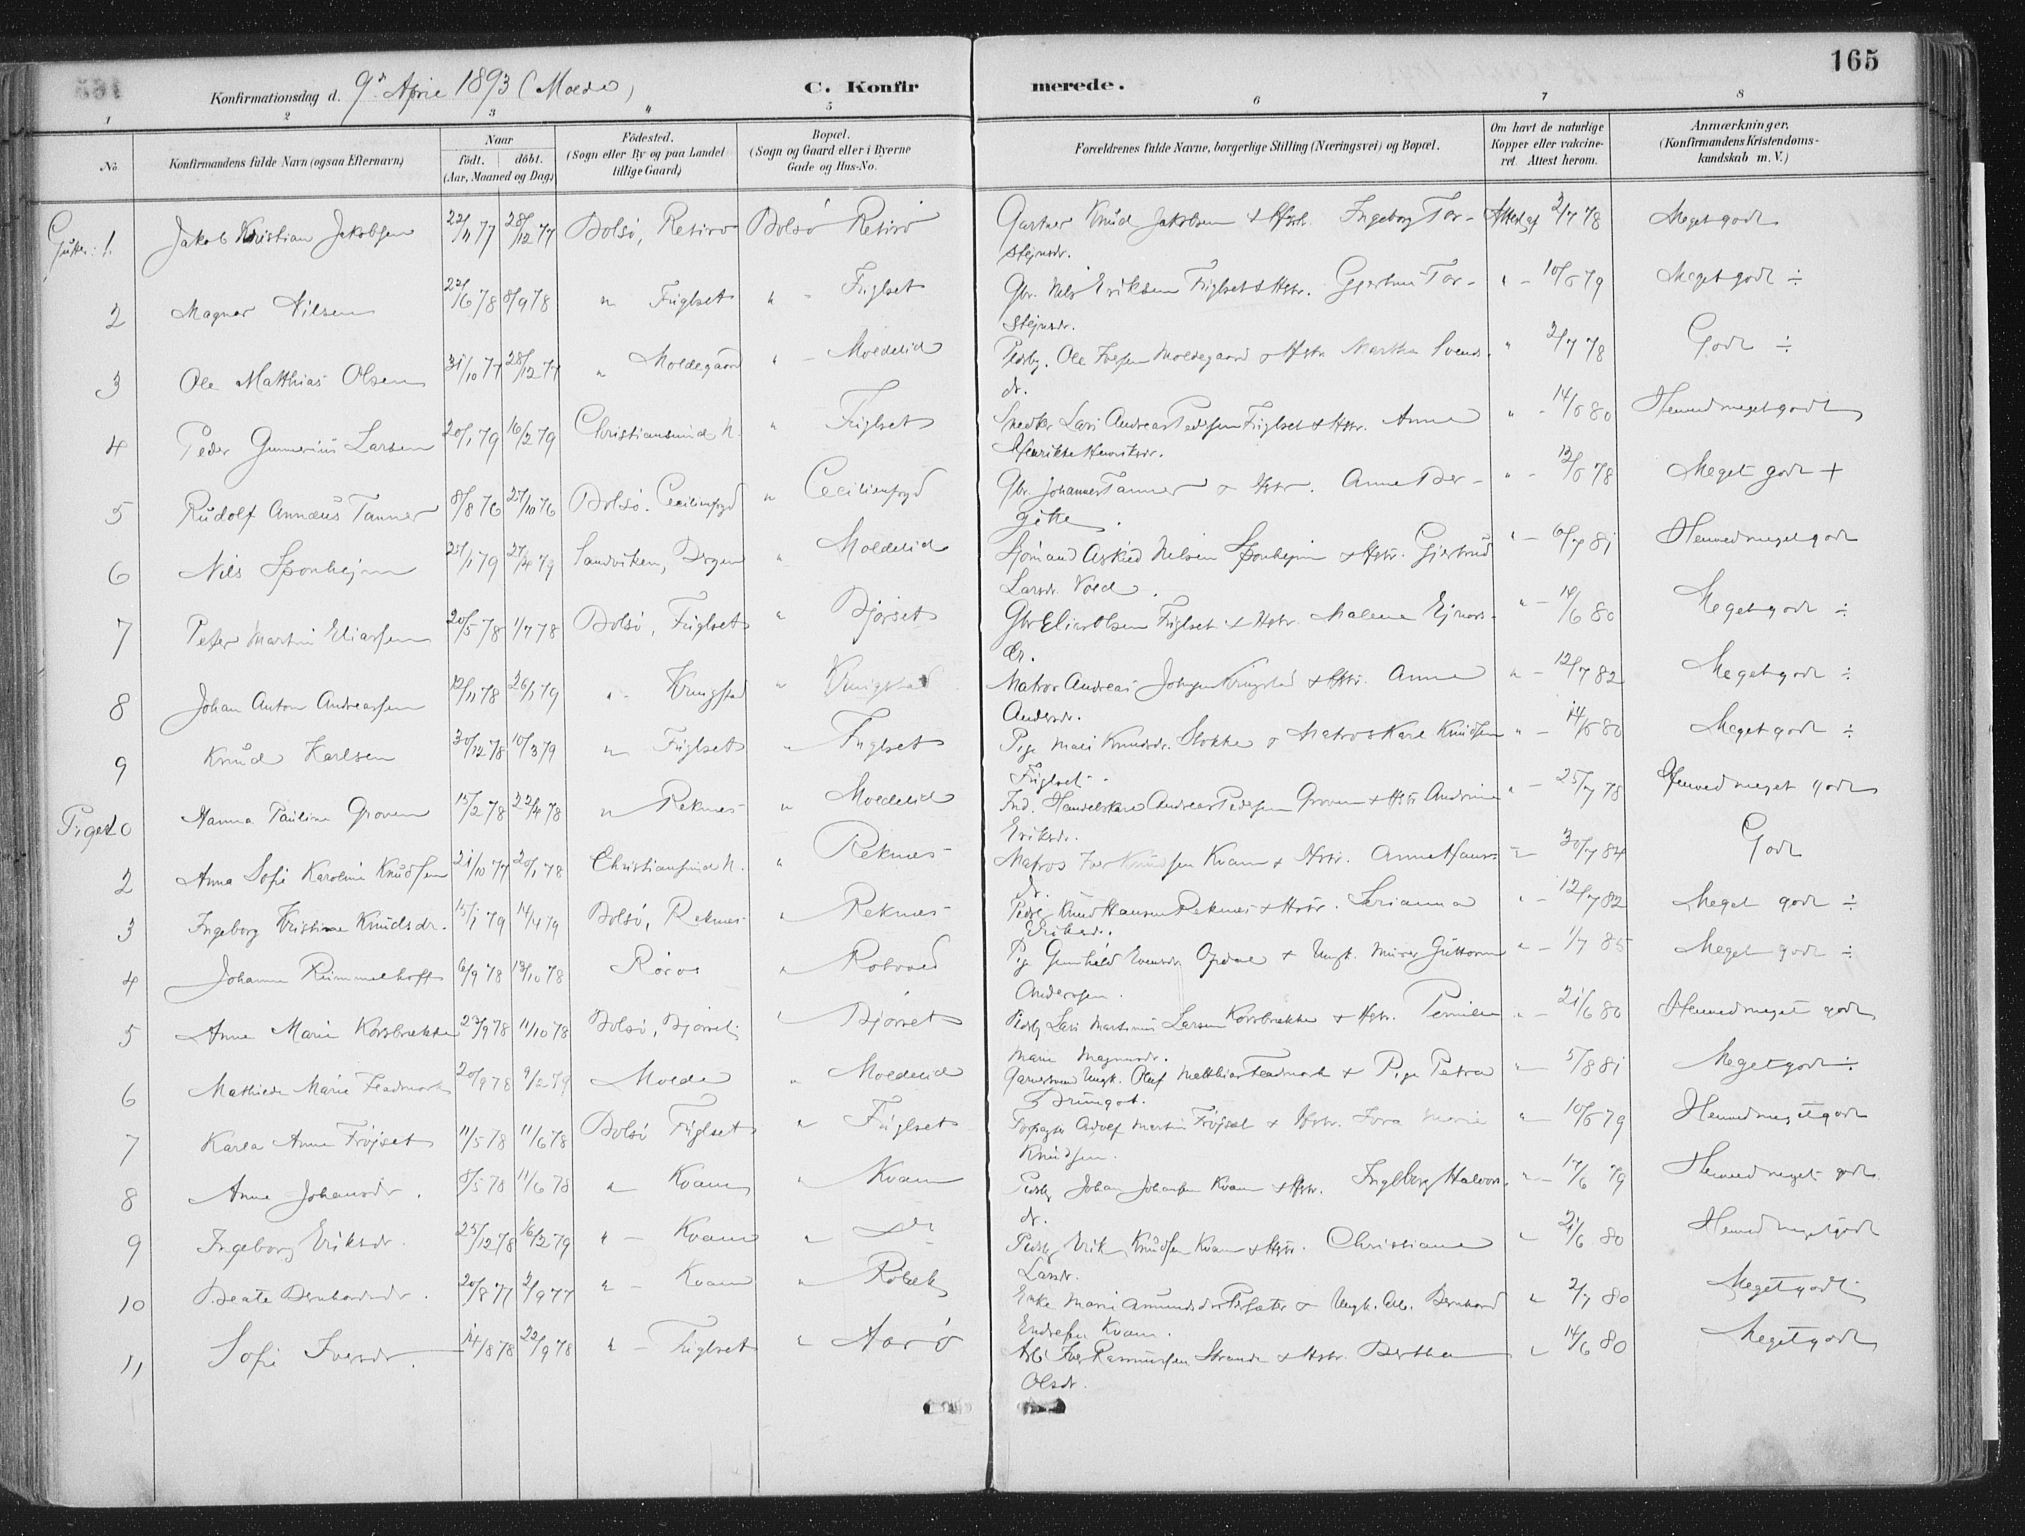 165
Konfirmationsdag d. 9de April 1893 (Molde)
C. Konfirmerede.
1 2 3 4 5 6 7 8
No
Konfirmandens fulde Navn (ogsaa Efternavn)
Naar
født. døbt.
(Aar, Maaned og Dag)
Fødested.
(Sogn eller By og paa Landet tillige Gaard)
Bopæl.
(Sogn og Gaard eller i Byerne Gade og Hus-No.
Forældrenes fulde Navne, borgerlige Stilling (Næringsvei) og Bopæl.
Om havt de naturlige Kopper eller vaccineret. Attest herom.
Anmærkninger.
(Konfirmandens Kristendomskundskab m. V.)
Gutter: 1. Jakob Kristian Jakobsen 22/11 77 28/12 77 Bolsö, Retiro Bolsö Retiro Gartner Knud Jakobsen & Hstr. Ingeborg Torstejnsdr. 2/7 78 Meget godt
2 Magnar Nilsen 22/6 78 8/9 78 " Fuglset " - Fuglset Gbr. Nils Eriksen Fuglset & Hstr. Gjertine Torstejnsdr. " - 10/6 79 Meget godt ÷
3 Ole Matthias Olsen 31/10 77 28/12 77 " Moldegaard " - Moldelid Pladsby. Ole Iversen Moldegaard & Hstr. Martha Svendsdr. " 2/7 78 Godt ÷
4 Peder Gunnerius Larsen 20/1 79 16/2 79 Christiansund N. " Fuglset Snedker Lars Andreas Pedersen Fuglset & Hstr. Anne Henrikke Henriksdr. " - 14/6 80 Henved meget godt
5 Rudolf Annæus Tanner 8/8 76 27/10 76 Bolsö. Cecilienfryd " Cecilienfryd Gbr. Johannes Tanner & Hstr. Anne Bergitte. " - 12/6 78 Meget godt +
6 Nils Sponhejm 27/4 79 Sandviken, Bergen " Moldelid Sjömand Nilsen Sponhejm & Hstr. Gjertrud Larsdr. Vold. " - 81 Henved meget godt
7 Peter Martin Eliassen 20/5 78 1/7 78 Bolsö, Fuglset " Bjørset Gbr. Elias Olsen Fuglset & Hstr. Malene Ejnorsdr. " - 14/6 80 Meget godt ÷
8 Johan Anton Andreassen 12/11 78 26/1 79 " - Kringstad " Kringstad Matros Andreas Kringstad & Hstr. Anne Andersdr. " - 12/7 82 Meget godt ÷
9 Knud Karlsen 30/12 78 10/3 79 " Fuglset " Fuglset Pige Mali Knudsdr. Stokke & Matros Karl Knudsen Fuglset. " - 14/6 80 Meget godt ÷
Piger: Hanna Pauline Groven 15/2 78 22/4 78 " Reknes " Moldelid Handelskar Andreas Pedersen Groven & Hstr. Andrine Eriksdr. " - 25/7 78 Henved meget godt
2 Anna Sofie Karoline Knudsen 21/10 77 20/1 78 Christiansund N. " Reknes Matros Iver Knudsen Kvam & Hstr. Anne Hansdr. " - 30/7 84 Godt
3 Ingeborg Kristine Knudsdr. 15/1 79 14/4 79 Bolsö, Reknes " Reknes Pladsby. Knud Hansen Reknes & Hstr. Serianna Eriksdr. " - 12/7 82 Meget godt ÷
4 Johanna Rümmelhoff 6/9 78 13/10 78 Röros " Pige Gunhild Opdal & Ungk. Murer Guttorm Andersen. " - 1/7 85 Meget godt ÷
5 Anne Marie Korsbrække 23/9 78 11/10 78 Bolsö, Bjørset " Bjørset Pladsby. Lars Martinus Larsen Korsbrække & Hstr. Pernille Marie Magnusdr. " - 21/6 80 Henved meget godt
6 Mathilde Marie 20/9 78 9/2 79 Molde " Moldelid Garversvend Ungk. Oluf Matthias & Pige Petra " - 5/8 81 Meget godt ÷
7 Karla Anna Fröjset 11/5 78 11/6 78 Bolsö Fuglset " Fuglset Adolf Martin Fröjset & Hstr. Marie Knudsen. " - 10/6 79 Henved meget godt
8 Anne Johansdr. 8/5 78 11/6 78 " Kvam " Kvam Pladsby. Johan Johansen Kvam & Hstr. Ingeborg Halvorsdr. " - 17/6 79 Henved meget godt
9 Ingeborg Eriksdr. 25/12 78 16/2 79 " - Kvam " Do Pladsby. Erik Knudsen Kvam & Hstr. Christiane Larsdr. " 21/6 80 Henved meget godt
10 Beate Bernhardsdr. 20/8 77 2/9 77 " - Kvam " Røbek Enke Marie Amundsdr. & Ungk. Arb. Bernhard Endresen Kvam. " 2/7 80 Meget godt
11 Sofie Iversdr. 14/8 78 22/9 78 " - Fuglset " Aarö Arb. Iver Rasmussen Strande & Hstr. Berthe Olsdr. " 14/6 80 Meget godt